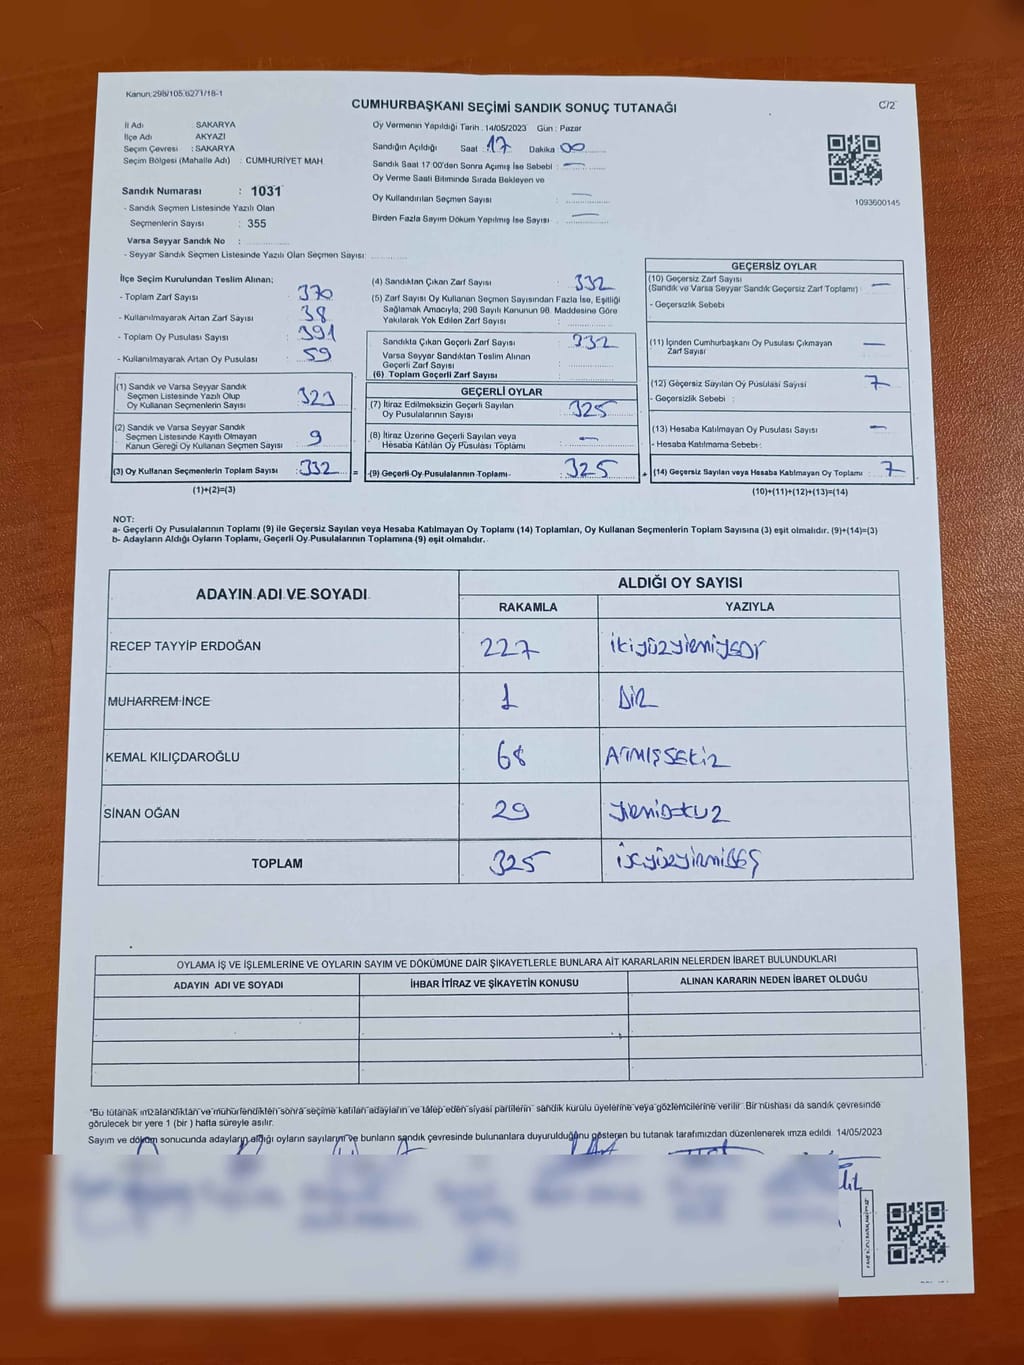 Kanun:298/105,6271/18-1
CUMHURBAŞKANI SEÇİMİ SANDIK SONUÇ TUTANAĞI
C/2
İl Adı SAKARYA
İlçe Adı AKYAZI
Seçim Çevresi : SAKARYA
Seçim Bölgesi (Mahalle Adı) : CUMHURİYET MAH.
Sandık Numarası : 1031
- Sandık Seçmen Listesinde Yazılı Olan
Seçmenlerin Sayısı : 355
Varsa Seyyar Sandık No :
- Seyyar Sandık Seçmen Listesinde Yazılı Olan Seçmen Sayısı:
Oy Vermenin Yapıldığı Tarih : 14/05/2023 Gün : Pazar
Sandığın Açıldığı Saat 17 Dakika 00
Sandık Saat 17:00'den Sonra Açımış İse Sebebi : —
Oy Verme Saati Bitiminde Sırada Bekleyen ve
Oy Kullandırılan Seçmen Sayısı : —
Birden Fazla Sayım Döküm Yapılmış İse Sayısı : —
1093600145
İlçe Seçim Kurulundan Teslim Alınan:
- Toplam Zarf Sayısı 370
- Kullanılmayarak Artan Zarf Sayısı 38
- Toplam Oy Pusulası Sayısı 391
- Kullanılmayarak Artan Oy Pusulası 59
(1) Sandık ve Varsa Seyyar Sandık
Seçmen Listesinde Yazılı Olup
Oy Kullanan Seçmenlerin Sayısı 323
(2) Sandık ve Varsa Seyyar Sandık
Seçmen Listesinde Kayıtlı Olmayan
Kanun Gereği Oy Kullanan Seçmen Sayısı 9
(3) Oy Kullanan Seçmenlerin Toplam Sayısı : 332
(1)+(2)=(3)
(4) Sandıktan Çıkan Zarf Sayısı 332
(5) Zarf Sayısı Oy Kullanan Seçmen Sayısından Fazla İse, Eşitliği
Sağlamak Amacıyla, 298 Sayılı Kanunun 98. Maddesine Göre
Yakılarak Yok Edilen Zarf Sayısı
Sandıkta Çıkan Geçerli Zarf Sayısı 332
Varsa Seyyar Sandıktan Teslim Alınan
Geçerli Zarf Sayısı
(6) Toplam Geçerli Zarf Sayısı
GEÇERLİ OYLAR
(7) İtiraz Edilmeksizin Geçerli Sayılan
Oy Pusulalarının Sayısı 325
(8) İtiraz Üzerine Geçerli Sayılan veya
Hesaba Katılan Oy Pusulası Toplamı —
= (9) Geçerli Oy Pusulalarının Toplamı 325
GEÇERSİZ OYLAR
(10) Geçersiz Zarf Sayısı
(Sandık ve Varsa Seyyar Sandık Geçersiz Zarf Toplamı) : —
- Geçersizlik Sebebi
(11) İçinden Cumhurbaşkanı Oy Pusulası Çıkmayan
Zarf Sayısı —
(12) Geçersiz Sayılan Oy Pusulası Sayısı 7
- Geçersizlik Sebebi :
(13) Hesaba Katılmayan Oy Pusulası Sayısı —
- Hesaba Katılmama Sebebi:
+ (14) Geçersiz Sayılan veya Hesaba Katılmayan Oy Toplamı : 7
(10)+(11)+(12)+(13)=(14)
NOT:
a- Geçerli Oy Pusulalarının Toplamı (9) ile Geçersiz Sayılan veya Hesaba Katılmayan Oy Toplamı (14) Toplamları, Oy Kullanan Seçmenlerin Toplam Sayısına (3) eşit olmalıdır. (9)+(14)=(3)
b- Adayların Aldığı Oyların Toplamı, Geçerli Oy Pusulalarının Toplamına (9) eşit olmalıdır.
ADAYIN ADI VE SOYADI ALDIĞI OY SAYISI
RAKAMLA YAZIYLA
RECEP TAYYİP ERDOĞAN 227 ikiyüzyirmiyedi
MUHARREM İNCE 1 BİR
KEMAL KILIÇDAROĞLU 68 ATMIŞSEKİZ
SİNAN OĞAN 29 yirmidokuz
TOPLAM 325 üçyüzyirmibeş
OYLAMA İŞ VE İŞLEMLERİNE VE OYLARIN SAYIM VE DÖKÜMÜNE DAİR ŞİKAYETLERLE BUNLARA AİT KARARLARIN NELERDEN İBARET BULUNDUKLARI
ADAYIN ADI VE SOYADI İHBAR İTİRAZ VE ŞİKAYETİN KONUSU ALINAN KARARIN NEDEN İBARET OLDUĞU
"Bu tutanak imzalandıktan ve mühürlendikten sonra seçime katılan adayların ve talep eden siyasi partilerin sandık kurulu üyelerine veya gözlemcilerine verilir. Bir nüshası da sandık çevresinde
görülecek bir yere 1 (bir) hafta süreyle asılır.
Sayım ve döküm sonucunda adayların aldığı oyların sayılarını ve bunların sandık çevresinde bulunanlara duyurulduğunu gösteren bu tutanak tarafımızdan düzenlenerek imza edildi 14/05/2023